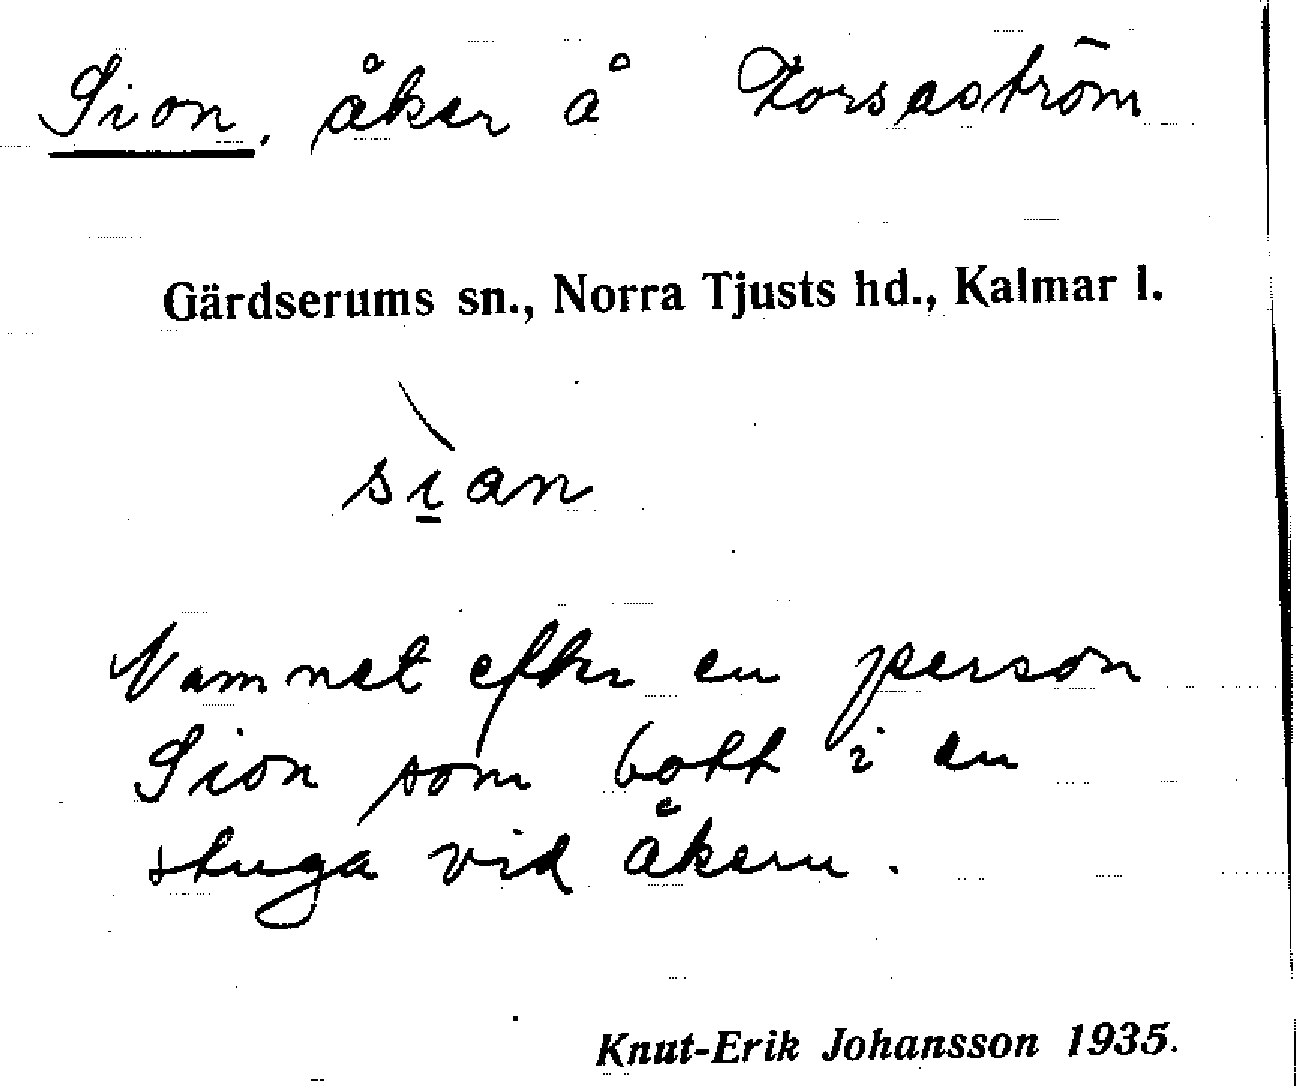 Sion, åker å Forsaström
Gärdserums sn., Norra Tjusts hd., Kalmar l.
sìan
Namnet efter en person
Sion som bott i en
stuga vid åkern.
Knut-Erik Johansson 1935.